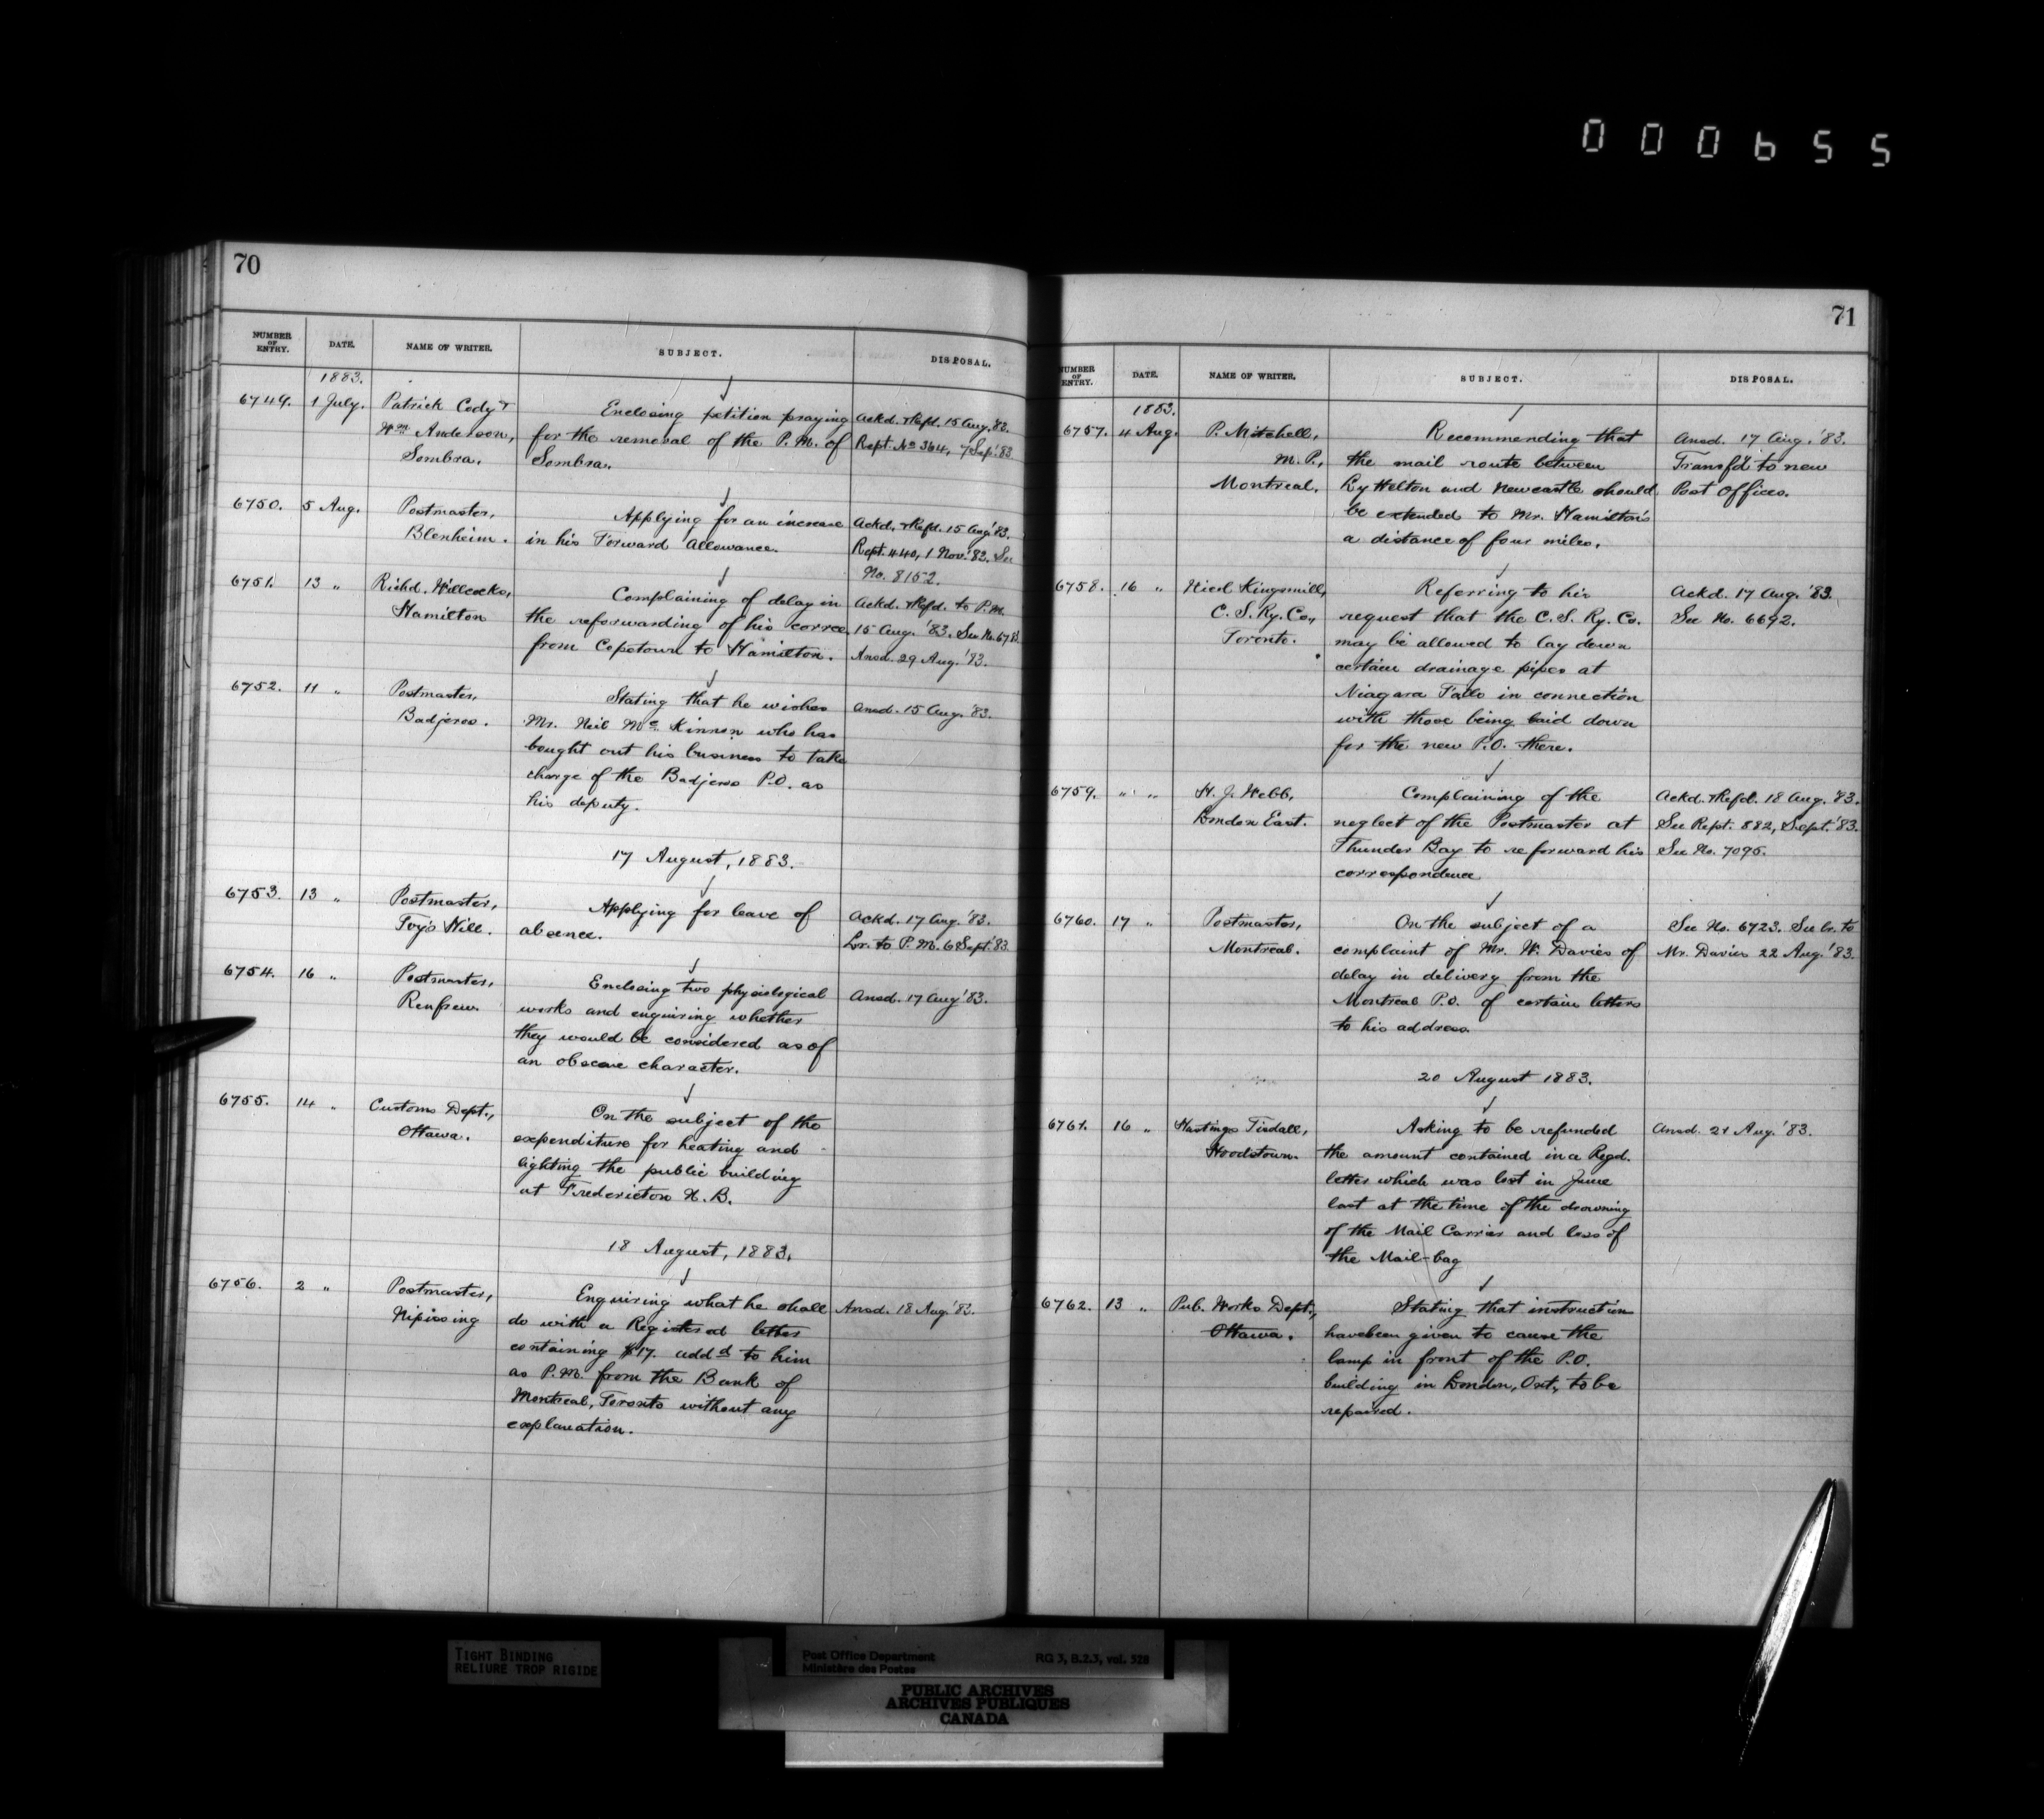 000655
70
NUMBER OF ENTRY. DATE. NAME OF WRITER. SUBJECT. DISPOSAL.
1883.
6749. 1 July. Patrick Cody & Enclosing petition praying Ackd. & Refd. 15 Aug. '83.
Wm Anderson, for the removal of the P. M. of Rept. No 364, 7 Sep. '83
Sombra. Sombra.
6750. 5 Aug. Postmaster, Applying for an increase Ackd. & Refd. 15 Aug. '83.
Blenheim. in his Forward Allowance. Rept. 440, 1 Nov. '83. See
No. 8152.
6751. 13 " Richd. Willcocks, Complaining of delay in Ackd. & Refd. to P.M.
Hamilton the reforwarding of his corrce. 15 Aug. '83. See No. 6783.
from Copetown to Hamilton. Ansd. 29 Aug. '83.
6752. 11 " Postmaster, Stating that he wishes Ansd. 15 Aug. '83.
Badjeros. Mr. Neil Mc Kinnon who has
bought out his business to take
charge of the Badjeros P.O. as
his deputy.
17 August, 1883.
6753. 13 " Postmaster, Applying for leave of Ackd. 17 Aug. '83.
Ivy's Hill. absence. Lr. to P. M. 6 Sept. '83
6754. 16 " Postmaster, Enclosing two physiological Ansd. 17 Aug '83.
Renfrew. works and enquiring whether
they would be considered as of
an obscene character.
6755. 14 " Customs Dept., On the subject of the
Ottawa. expenditure for heating and
lighting the public building
at Fredericton N. B.
18 August, 1883.
6756. 2 " Postmaster, Enquiring what he shall Ansd. 18 Aug. '83.
Nipissing do with a Registered letter
containing $17. addd to him
as P. M. from the Bank of
Montreal, Toronto without any
explanation.
71
NUMBER OF ENTRY. DATE. NAME OF WRITER. SUBJECT. DISPOSAL.
1883.
6757. 4 Aug. P. Mitchell, Recommending that Ansd. 17 Aug. '83.
M. P., the mail route between Transf'd to new
Montreal. Ry Helton and Newcastle should Post Offices.
be extended to Mr. Hamilton's
a distance of four miles.
6758. 16 " Nicol Kingsmill, Referring to his Ackd. 17 Aug. '83.
C. S. Ry. Co., request that the C. S. Ry. Co. See No. 6692.
Toronto. may be allowed to lay down
certain drainage pipes at
Niagara Falls in connection
with those being laid down
for the new P.O. there.
6759. " " H. J. Webb, Complaining of the Ackd. & Refd. 18 Aug. '83.
London East. neglect of the Postmaster at See Rept. 882, Sept. '83.
Thunder Bay to reforward his See No. 7095.
correspondence
6760. 17 " Postmaster, On the subject of a See No. 6723. See lr. to
Montreal. complaint of Mr. W. Davies of Mr. Davies 22 Aug. '83.
delay in delivery from the
Montreal P.O. of certain letters
to his address.
20 August 1883.
6761. 16 " Hastings Tisdall, Asking to be refunded Ansd. 21 Aug. '83.
Woodstown. the amount contained in a Regd.
letter which was lost in June
last at the time of the drowning
of the Mail Carrier and loss of
the Mail-bag
6762. 13 " Pub. Works Dept., Stating that instruction
Ottawa. have been given to cause the
lamp in front of the P.O.
building in London, Ont., to be
repaired.
TIGHT BINDING
RELIURE TROP RIGIDE
Post Office Department RG 3, B.2.3, vol. 528
Ministère des Postes
PUBLIC ARCHIVES
ARCHIVES PUBLIQUES
CANADA